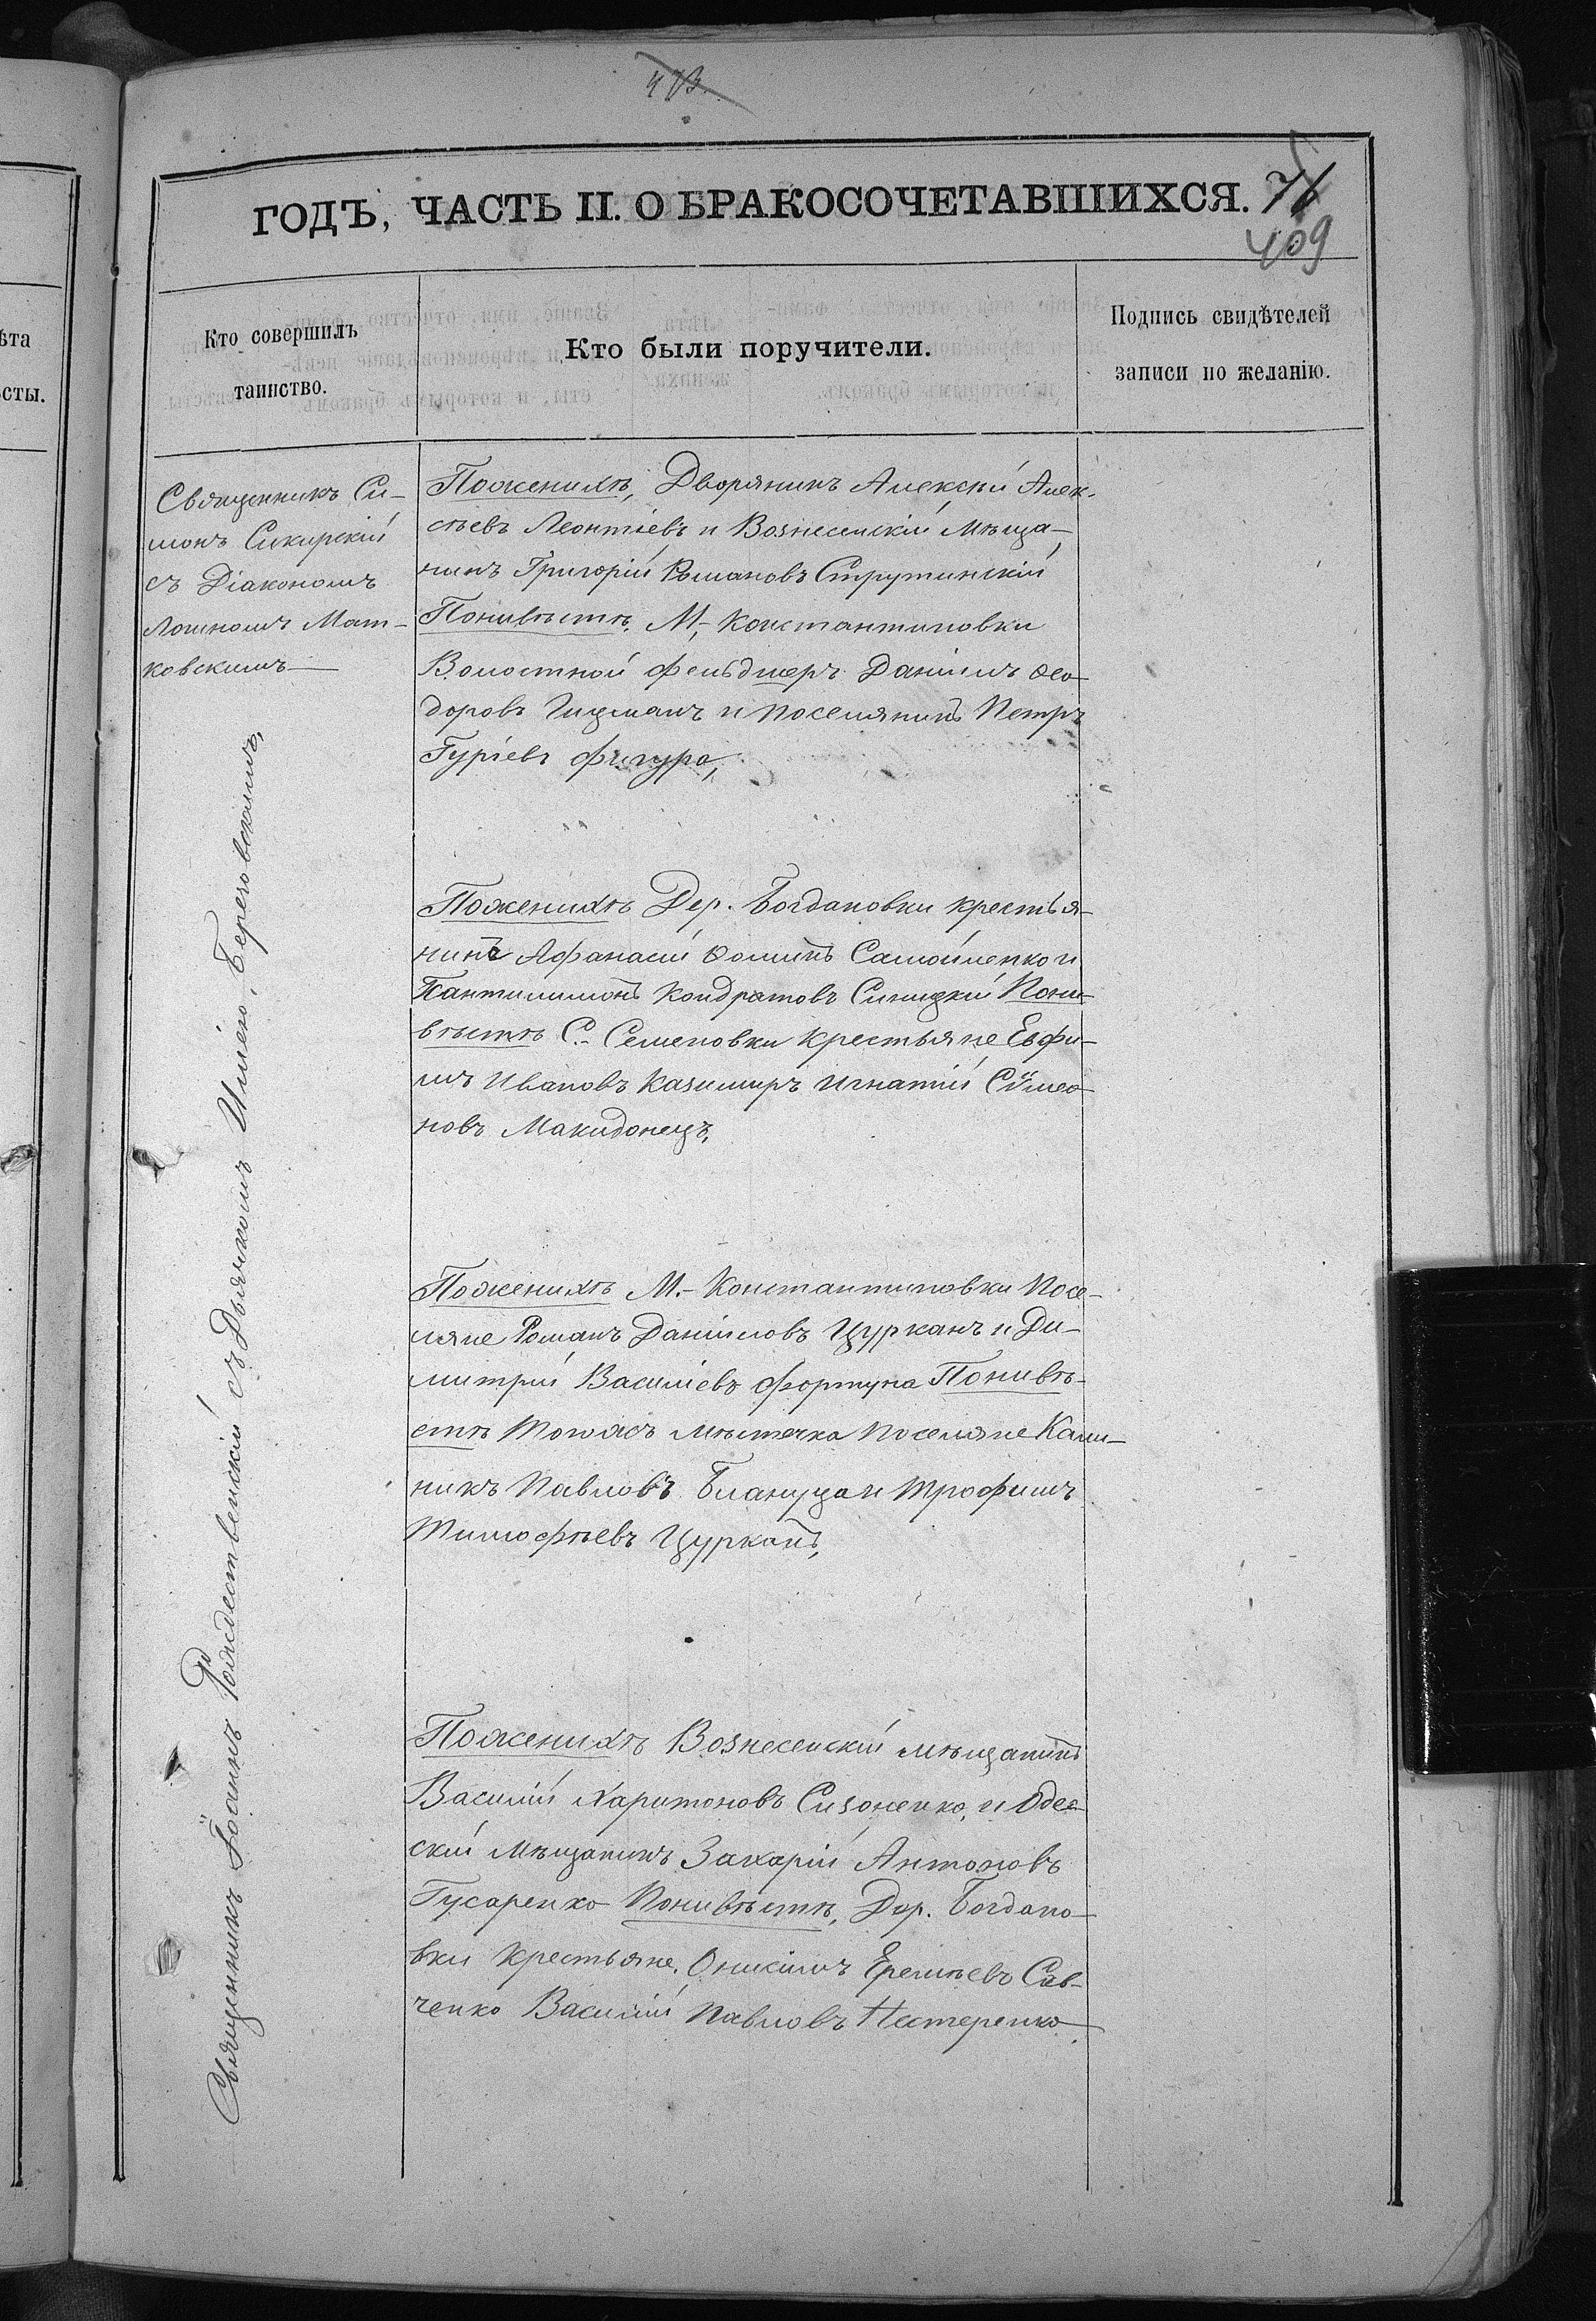 473.
ГОДЪ, ЧАСТЬ II. О БРАКОСОЧЕТАВШИХСЯ.
409
Кто совершилъ
таинство.
Кто были поручители.
Подпись свидѣтелей
записи по желанію.
ѣта
ѣсты.
Священникъ Си-
монъ Сикирскій
съ Діакономъ
Логиномъ Мат-
ковскимъ
Поженихѣ, Дворянинъ Алексѣй Алек-
сѣевъ Леонтіевъ и Вознесенскій Мѣща-
нинъ Григорій Романовъ Струтинскій
Поневѣстѣ, М. Константиновки
Волостной фельдшеръ Даніилъ Ѳео-
доровъ Гицманъ и поселянинъ Петръ
Гуріевъ Фигура,
Поженихѣ Дер. Богдановки крестья-
нинъ Афанасій Ѳоминъ Самойленко и
Пантилимонъ Кондратовъ Синицкій Поне-
вѣстѣ С. Семеновки крестьяне Евфи-
мъ Ивановъ Казимиръ Игнатій Сѵмео-
новъ Макидонецъ,
Поженихѣ М. Константиновки Посе-
ляне Романъ Даніиловъ Цурканъ и Ди-
митрій Василіевъ Фортуна Поневѣ-
стѣ Тогожъ мѣстечка поселяне Кали-
никъ Павловъ Блануца и Трофимъ
Тимофѣевъ Цурканъ,
Поженихѣ Вознесенскій мѣщанинъ
Василій Харитоновъ Сизоненко, и Одес-
скій Мѣщанинъ Захарій Антоновъ
Гусаренко Поневѣстѣ, Дер. Богдано-
вки Крестьяне, Онисимъ Еремѣевъ Сав-
ченко Василій Павловъ Нестеренко
Священникъ Іоаннъ Рождественскій съ Дьячкомъ Иліею Березовскимъ,